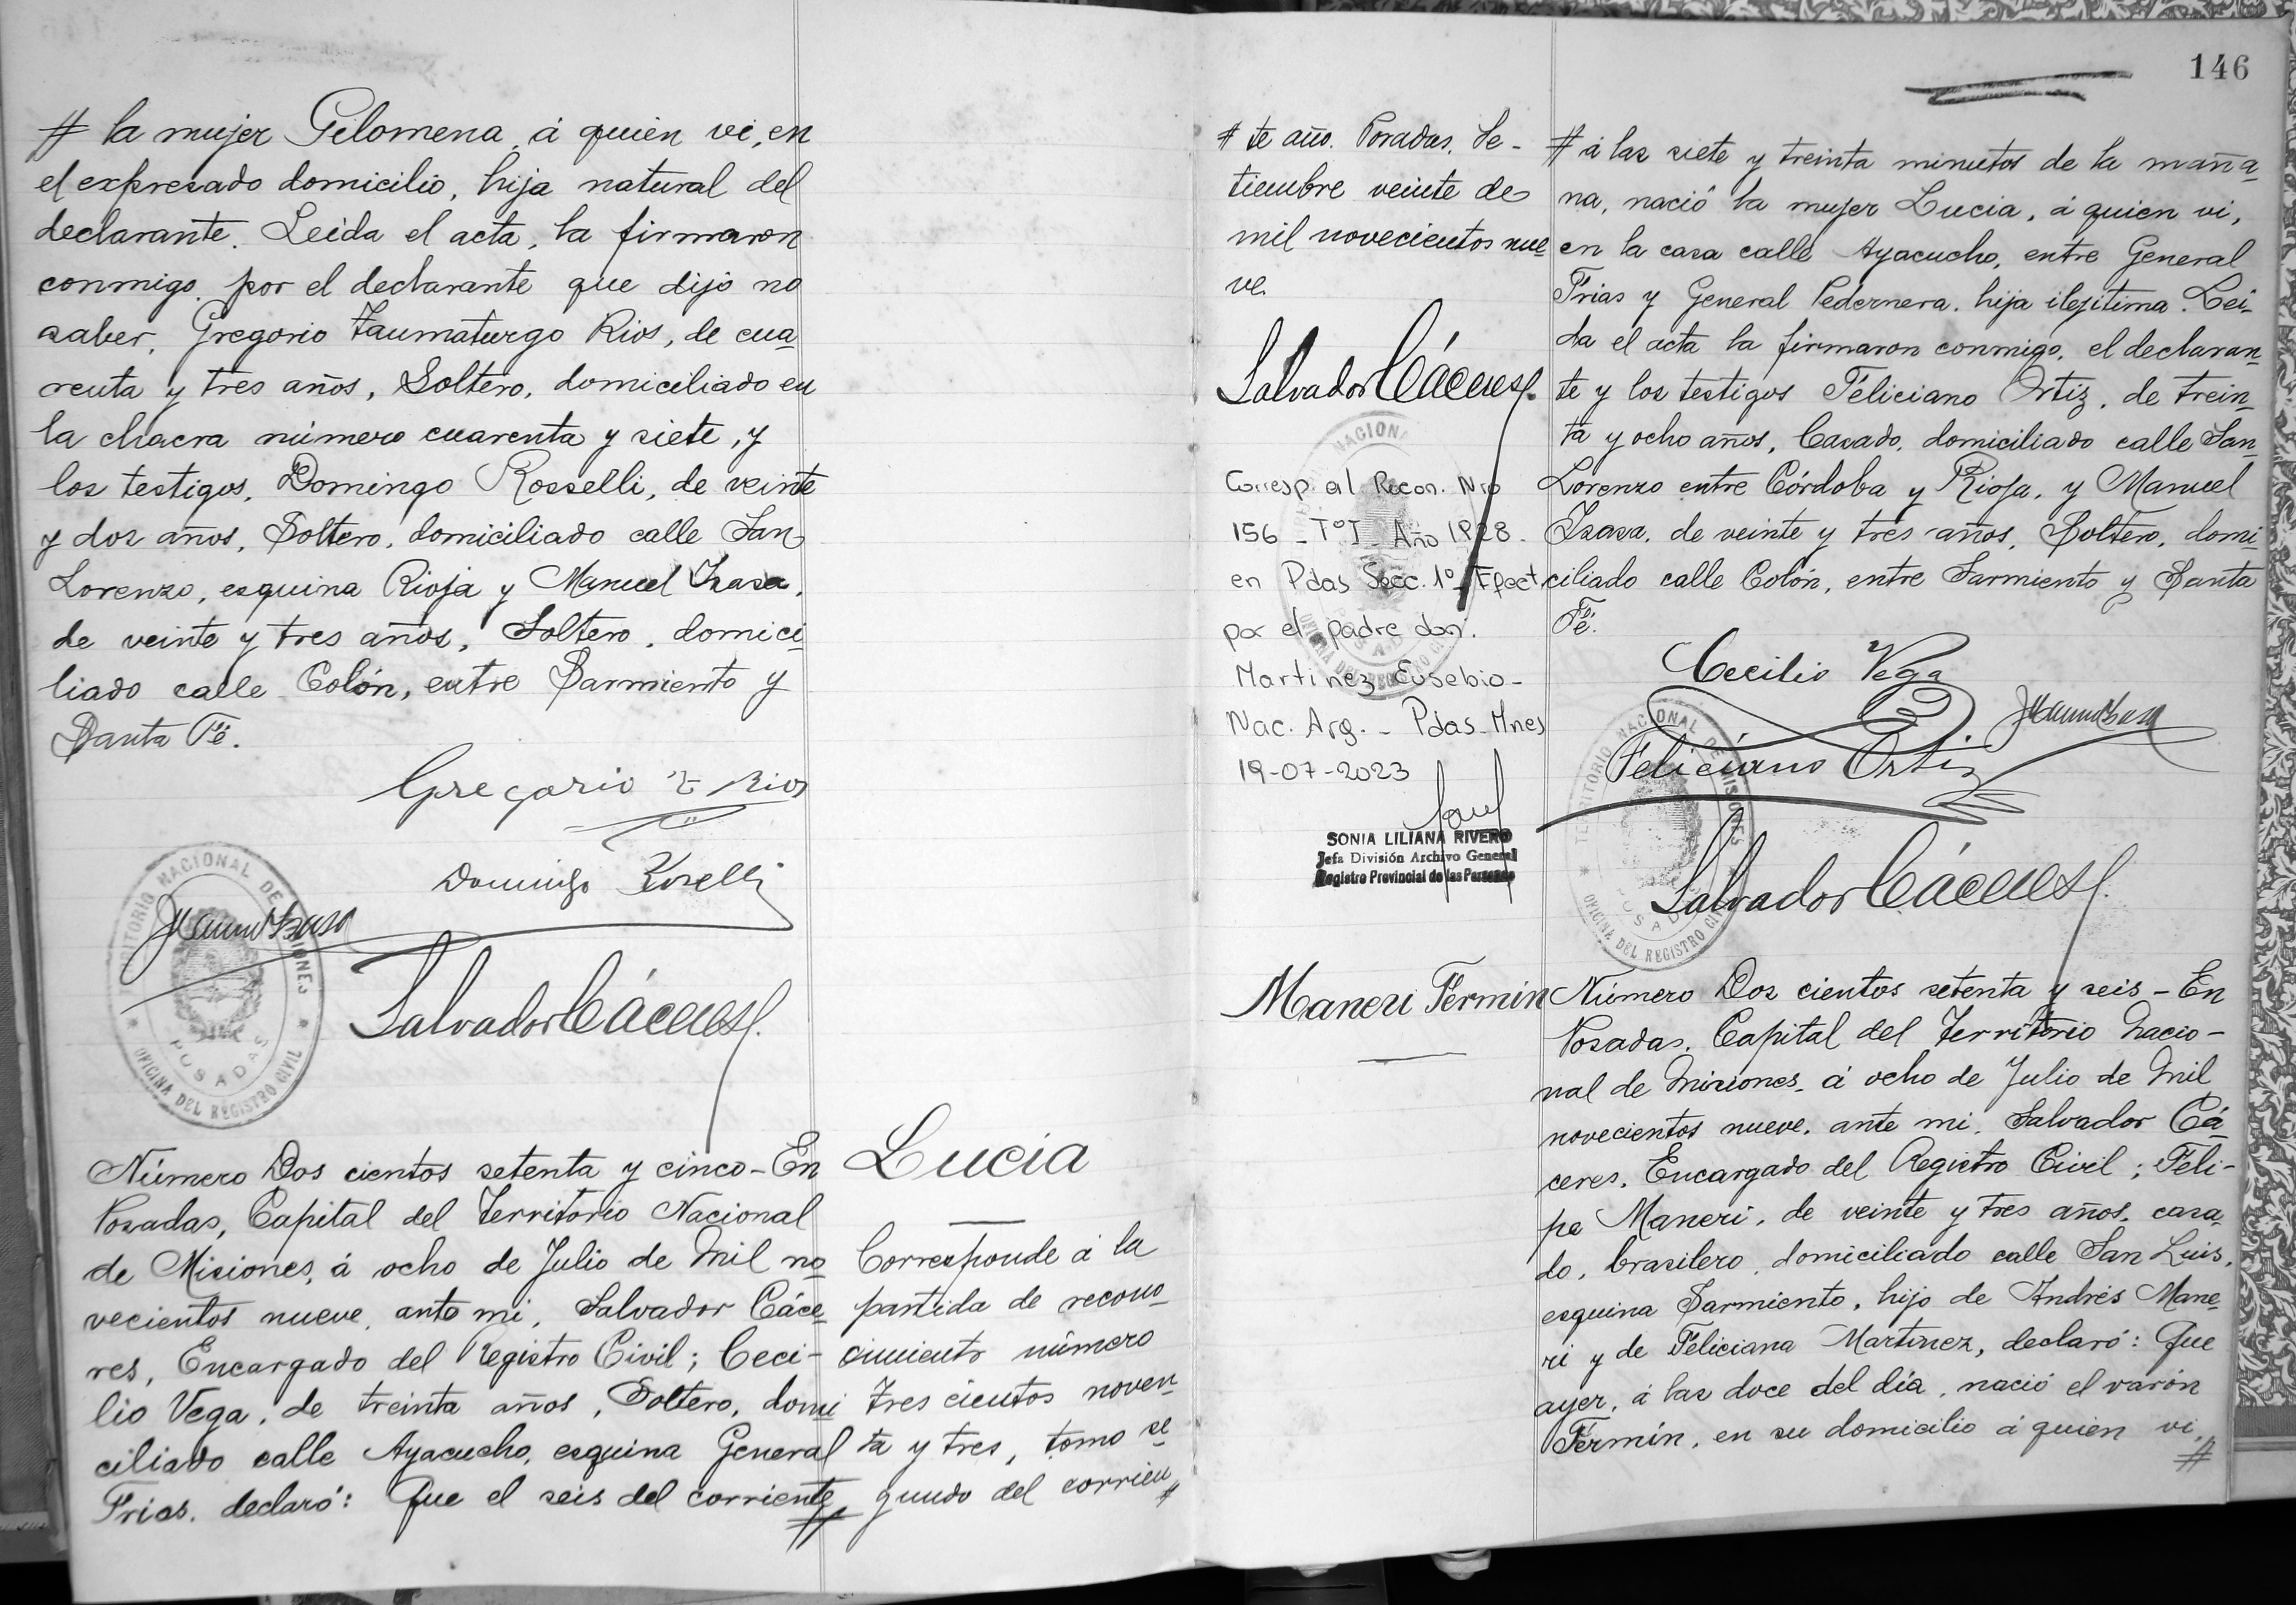 # la mujer Filomena, á quien vi, en
el expresado domicilio, hija natural del
declarante. Leida el acta, la firmaron
conmigo, por el declarante que dijo no
saber, Gregorio Taumaturgo Rios, de cua-
renta y tres años, Soltero, domiciliado en
la chacra número cuarenta y siete, y
los testigos, Domingo Rosselli, de veinte
y dos años, Soltero, domiciliado calle San
Lorenzo, esquina Rioja y Manuel Isasa,
de veinte y tres años, Soltero, domici-
liado calle Colón, entre Sarmiento y
Santa Fé.
Gregorio T Rios
Domingo Roselli
Manuel Isasa
TERRITORIO NACIONAL DE MISIONES
POSADAS
* OFICINA DEL REGISTRO CIVIL *
Salvador Cáceres
Número Dos cientos setenta y cinco - En
Posadas, Capital del Territorio Nacional
de Misiones, á ocho de Julio de Mil no-
vecientos nueve, ante mi, Salvador Cáce-
res, Encargado del Registro Civil; Ceci-
lio Vega, de treinta años, Soltero, domi-
ciliado calle Ayacucho, esquina General
Frias, declaró: Que el seis del corriente, #
Lucia
Corresponde á la
partida de recono-
cimiento número
tres cientos noven-
ta y tres, tomo se-
gundo del corrien #
146
# te año. Posadas, Se-
tiembre veinte de
mil novecientos nue-
ve.
Salvador Cáceres
Corresp al Recon. Nro
156 - Tº I - Año 1928.
en Pdas Secc. 1º Efect.
por el padre don:
Martinez Eusebio -
Nac. Arg. - Pdas. Mnes
19-07-2023
SONIA LILIANA RIVERO
Jefa División Archivo General
Registro Provincial de las Personas
# á las siete y treinta minutos de la maña-
na, nació la mujer Lucia, á quien vi,
en la casa calle Ayacucho, entre General
Frias y General Pedernera, hija ilejitima. Lei-
da el acta la firmaron conmigo, el declaran-
te y los testigos Feliciano Ortiz, de trein-
ta y ocho años, Casado, domiciliado calle San
Lorenzo entre Córdoba y Rioja, y Manuel
Isasa, de veinte y tres años, Soltero, domi-
ciliado calle Colón, entre Sarmiento y Santa
Fé.
Cecilio Vega
Manuel Isasa
Feliciano Ortiz
TERRITORIO NACIONAL DE MISIONES
POSADAS
* OFICINA DEL REGISTRO CIVIL *
Salvador Cáceres
Maneri Fermin
Número Dos cientos setenta y seis - En
Posadas, Capital del Territorio Nacio-
nal de Misiones, á ocho de Julio de Mil
novecientos nueve, ante mi, Salvador Cá-
ceres, Encargado del Registro Civil; Feli-
pe Maneri, de veinte y tres años, casa-
do, brasilero, domiciliado calle San Luis,
esquina Sarmiento, hijo de Andrés Mane-
ri y de Feliciana Martinez, declaró: Que
ayer, á las doce del día, nació el varón
Fermín, en su domicilio á quien vi, #